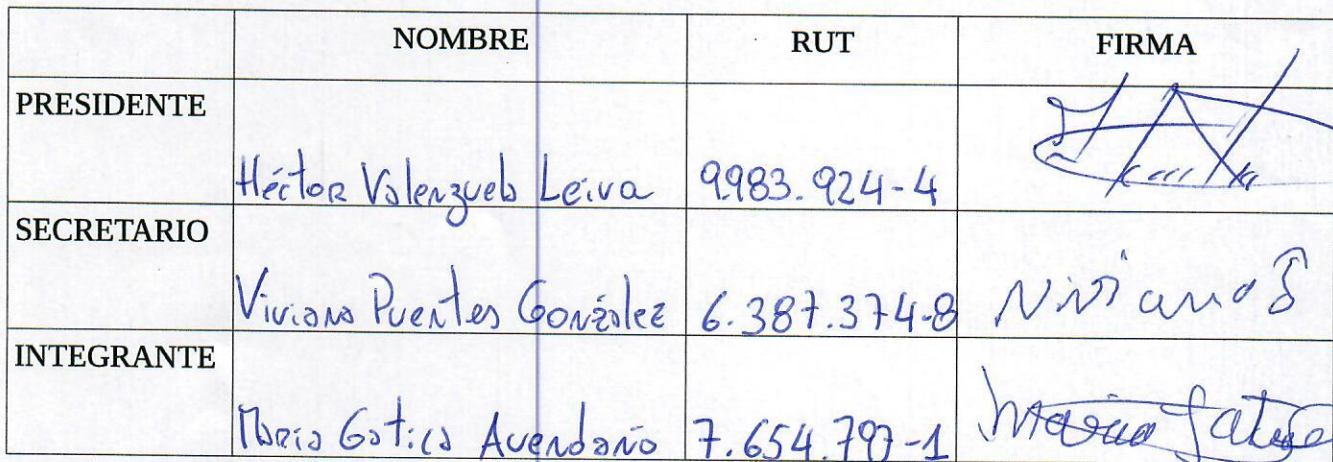 NOMBRE RUT FIRMA
PRESIDENTE
Héctor Valenzuela Leiva 9983.924-4
SECRETARIO
Viviana Puentes González 6.387.374-8 Viviana
INTEGRANTE
Maria Gatica Avendaño 7.654.797-1 Maria Gatica